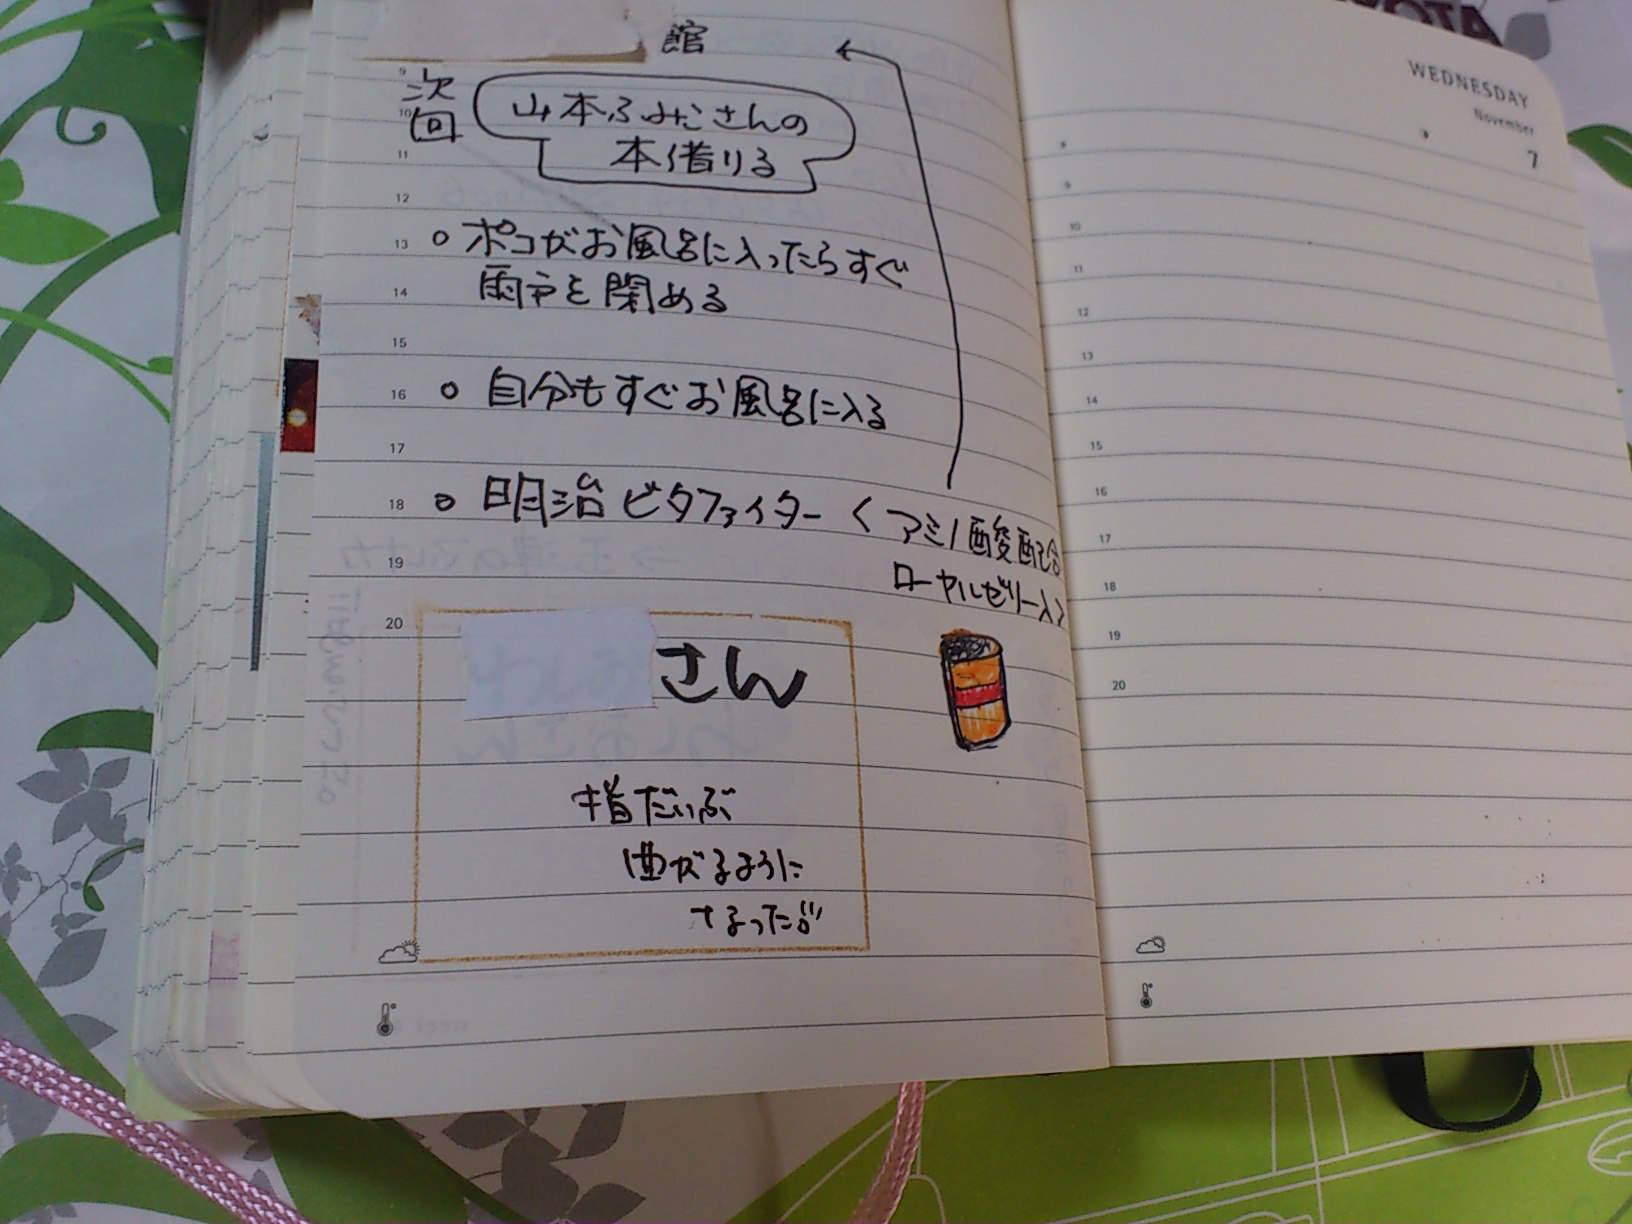 館
次回
山本ふみこさんの
本借りる
○ ポコがお風呂に入ったらすぐ
雨戸を閉める
○ 自分もすぐお風呂に入る
○ 明治ビタファイター < アミノ酸配合
ローヤルゼリー入り
さん
指だいぶ
曲がるように
なったが
9
10
11
12
13
14
15
16
17
18
19
20
WEDNESDAY
November
7
8
9
10
11
12
13
14
15
16
17
18
19
20